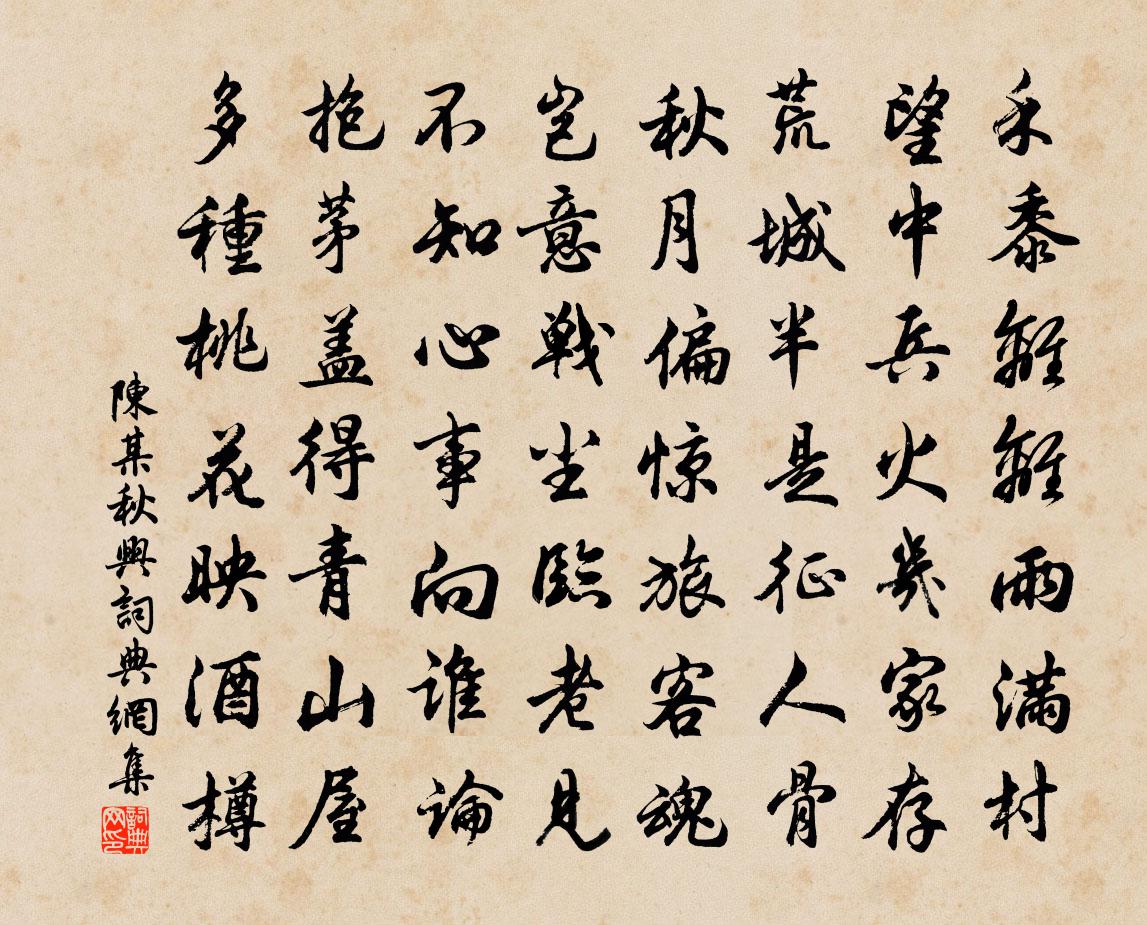 禾黍離離雨滿村
望中兵火幾家存
荒城半是征人骨
秋月偏惊旅客魂
豈意戦尘臨老見
不知心事向誰論
抱茅盖得青山屋
多種桃花映酒樽
陳某秋興詞典網集
詞典网印